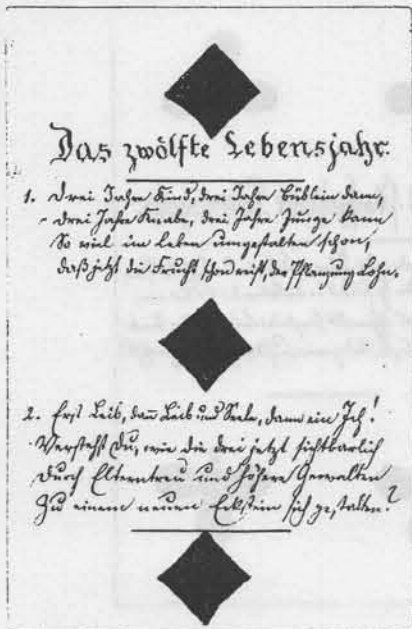 Das zwölfte Lebensjahr.
1. Drei Jahre Kind, drei Jahre Büblein dann,
- drei Jahre Knabe, drei Jahre Junge kann
So viel im Leben umgestalten schon,
daß jetzt die Frucht schon reift, der Pflanzung Lohn.
2. Erst Leib, dann Leib und Seele, dann ein Ich!
Verstehst Du, wie die drei jetzt sichtbarlich
Durch Elterntreu und höhere Gewalten
Zu einem neuen Eckstein sich gestalten?